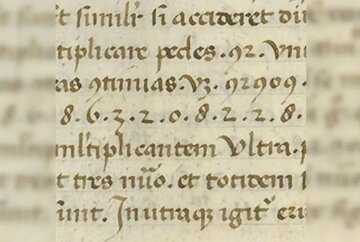 t simili si accideret di
tiplicare pedes .92. Vni
ras 9tinuas. Vz. 92909.
8.6.3.2.0.8.2.2.8.
mltiplicantem Vltra.
t tres nūo. et totidem
unt. In utraq igit eru